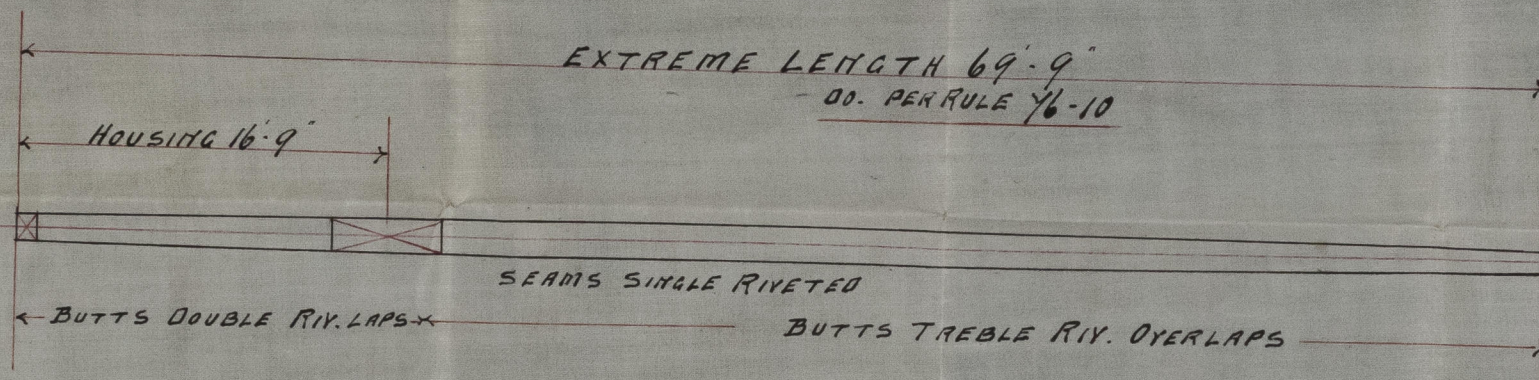 EXTREME LENGTH 69'-9"
DO. PER RULE 76-10
HOUSING 16'-9"
SEAMS SINGLE RIVETED
BUTTS DOUBLE RIV. LAPS
BUTTS TREBLE RIV. OVERLAPS